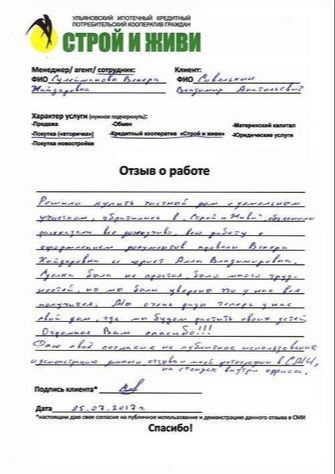 УЛЬЯНОВСКИЙ ИПОТЕЧНЫЙ КРЕДИТНЫЙ
ПОТРЕБИТЕЛЬСКИЙ КООПЕРАТИВ ГРАЖДАН
СТРОЙ И ЖИВИ
Менеджер/ агент/ сотрудник: Клиент:
ФИО Сулейманова Венера ФИО
Хайдаровна Владимир Анатольевич
Характер услуги (нужное подчеркнуть):
-Продажа -Обмен -Материнский капитал
-Покупка «вторичка» -Кредитный кооператив «Строй и живи» -Юридические услуги
-Покупка новостройки
Отзыв о работе
Решили купить частный дом с земельным
участком, обратились в "Строй и Живи" объяснили
рассказали все доходчиво, всю работу с
оформлением документов провели Венера
Хайдаровна и юрист Алла Владимировна.
Сделка была не простая, было много труд-
ностей, но мы были уверены что у нас все
получится. Мы очень рады теперь у нас
свой дом, где мы будем растить своих детей
Огромное Вам спасибо!!!
Даю своё согласие на публичное использование
и демонстрацию данного отзыва и моей фотографии в СМИ,
на стендах внутри офиса.
Подпись клиента*
Дата 25.07.2017г.
*настоящим даю свое согласие на публичное использование и демонстрацию данного отзыва в СМИ
Спасибо!